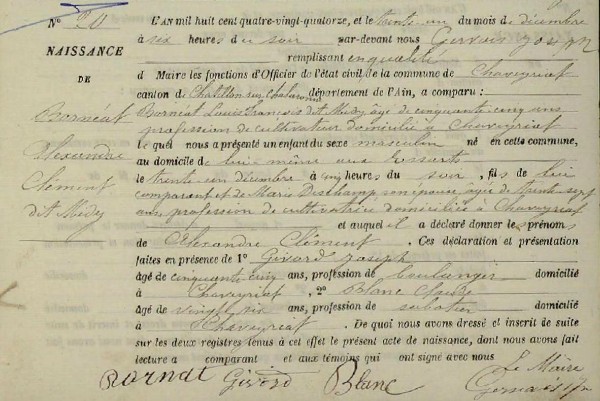 N° 20
NAISSANCE
DE
Bornéat
Alexandre
Clément
dit Médey
L'An mil huit cent quatre-vingt-quatorze, et le trente un du mois de décembre
à six heures du soir par-devant nous Gervais Joseph
remplissant en qualité
d Maire les fonctions d'Officier de l'état civil de la commune de Chaveyriat
canton de Chatillon sur Chalaronne département de l'Ain, a comparu :
Bornéat Louis François dit Médey âgé de cinquante cinq ans
profession de cultivateur domicilié à Chaveyriat
lequel nous a présenté un enfant du sexe masculin né en cette commune,
au domicile de lui même aux
le trente un décembre à cinq heures du soir, fils de lui
comparant et de Marie Deschamp son épouse âgée de trente sept
ans profession de cultivatrice domiciliée à Chaveyriat
et auquel il a déclaré donner les prénoms
de Alexandre Clément. Ces déclaration et présentation
faites en présence de 1° Givord Joseph
âgé de cinquante cinq ans, profession de boulanger domicilié
à Chaveyriat, 2° Blanc Claude
âgé de vingt six ans, profession de sabotier domicilié
à Chaveyriat. De quoi nous avons dressé et inscrit de suite
sur les deux registres tenus à cet effet le présent acte de naissance, dont nous avons fait
lecture a comparant et aux témoins qui ont signé avec nous
Bornat Givord Blanc Le Maire
Gervais Jh